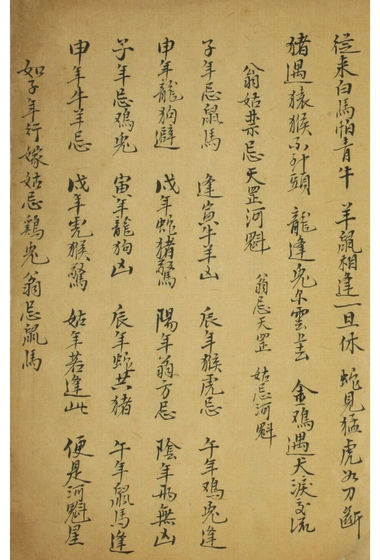 從来白馬怕青牛 羊鼠相逢一旦休 蛇見猛虎如刀断
猪遇猿猴不頭 龍逢兔雲去 金鷄遇犬淚交流
翁姑禁忌天罡河魁 翁忌天罡 姑忌河魁
子年忌鼠馬 逢寅牛羊凶 辰年猴虎忌 午年鷄兔逢
申年龍狗避 戌年蛇猪驚 陽年翁方忌 陰年無凶
子年忌鷄兔 寅年龍狗凶 辰年蛇共猪 午年鼠馬逢
申年牛羊忌 戌年虎猴驚 姑年若逢此 便是河魁星
如子年行嫁姑忌鷄兔翁忌鼠馬